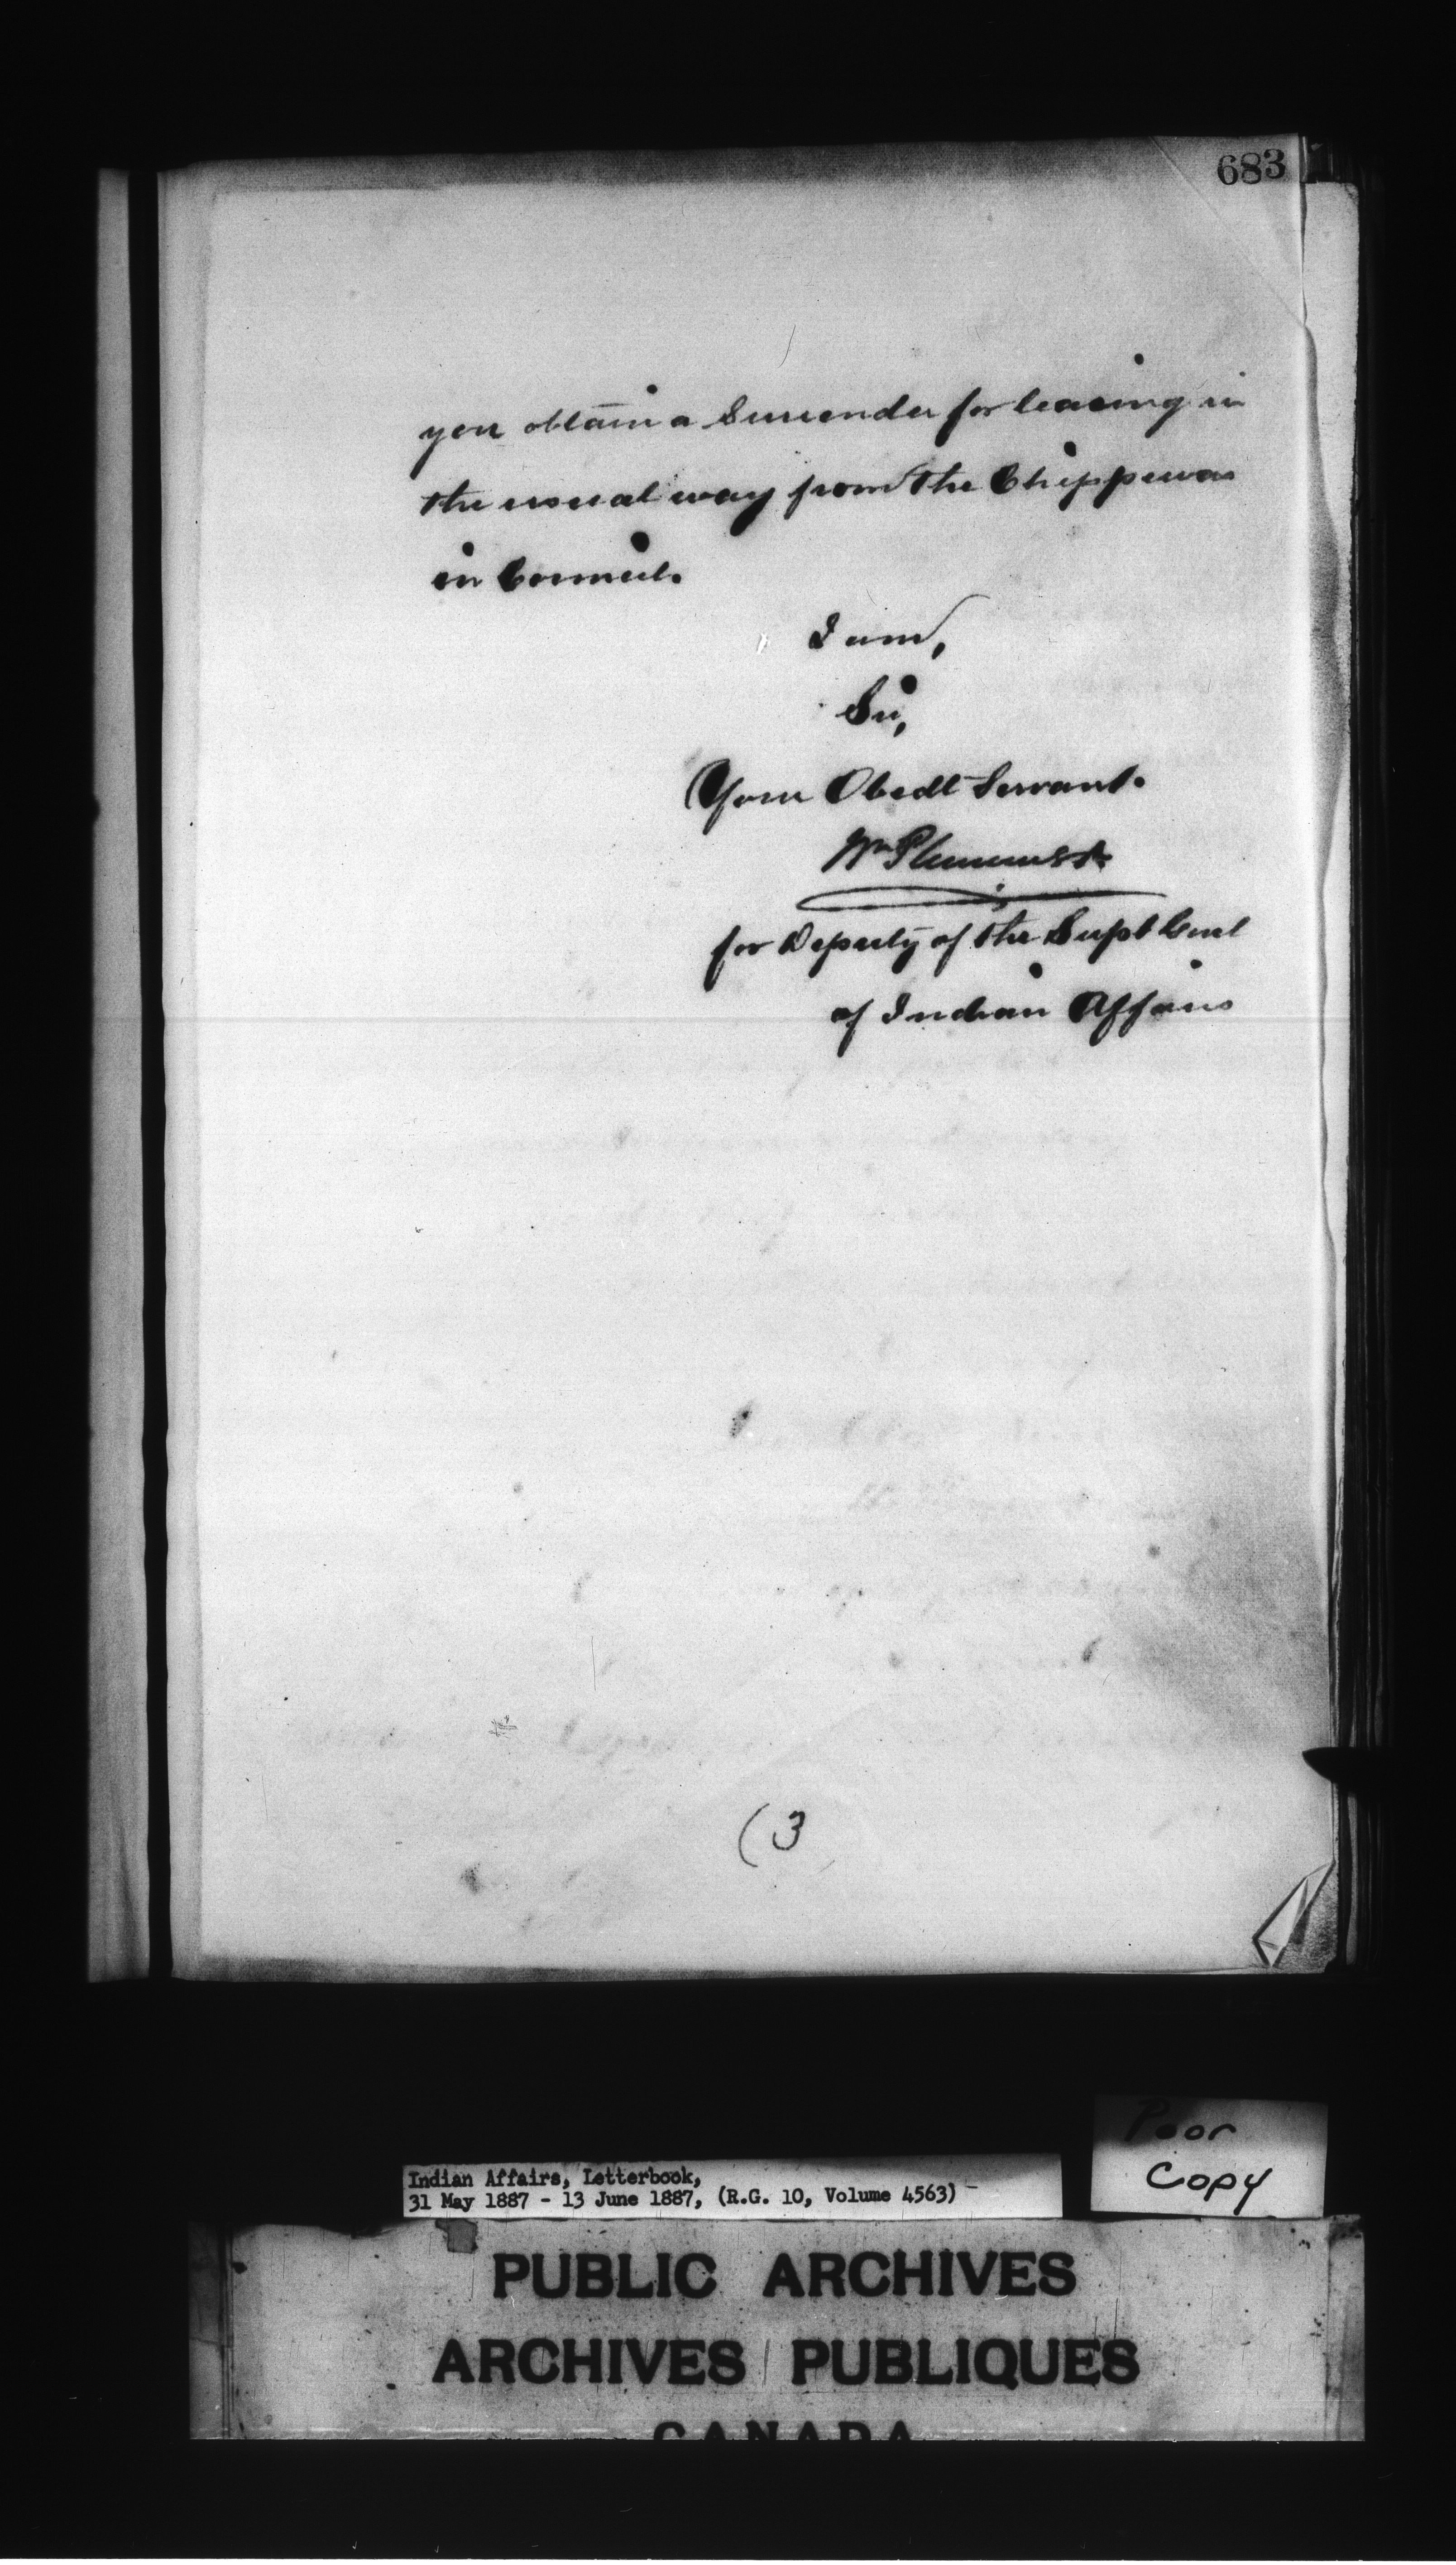 683
you obtain a Surrender for leasing in
the usual way from the Chippewas
in Council.
I am,
Sir,
Your Obedt Servant.
Wm Plummer
for Deputy of the Supt Genl
of Indian Affairs
(3
Poor
Copy
Indian Affairs, Letterbook,
31 May 1887 - 13 June 1887, (R.G. 10, Volume 4563)
PUBLIC ARCHIVES
ARCHIVES PUBLIQUES
CANADA